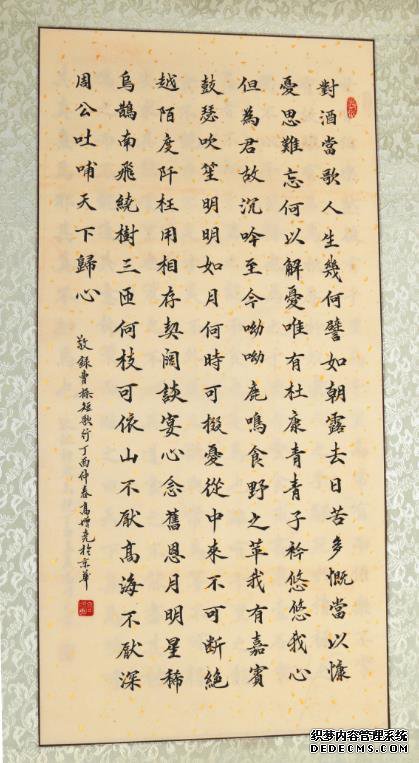 對酒當歌人生幾何譬如朝露去日苦多慨當以慷
憂思難忘何以解憂唯有杜康青青子衿悠悠我心
但為君故沉吟至今呦呦鹿鳴食野之苹我有嘉賓
鼓瑟吹笙明明如月何時可掇憂從中來不可斷絕
越陌度阡枉用相存契闊談宴心念舊恩月明星稀
烏鵲南飛繞樹三匝何枝可依山不厭高海不厭深
周公吐哺天下歸心
敬錄曹操短歌行丁酉仲春高增於京華
织梦内容管理系统
DEDECMS.COM